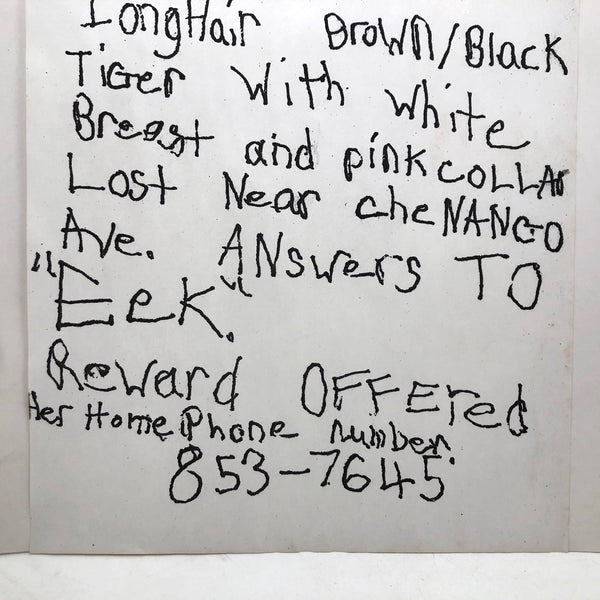 LongHair Brown/Black
Tiger with white
Breast and pink COLLAr
Lost Near cheNANGO
Ave. ANswers TO
"Eek".
Reward OFFEred
Her Home Phone number.
853-7645